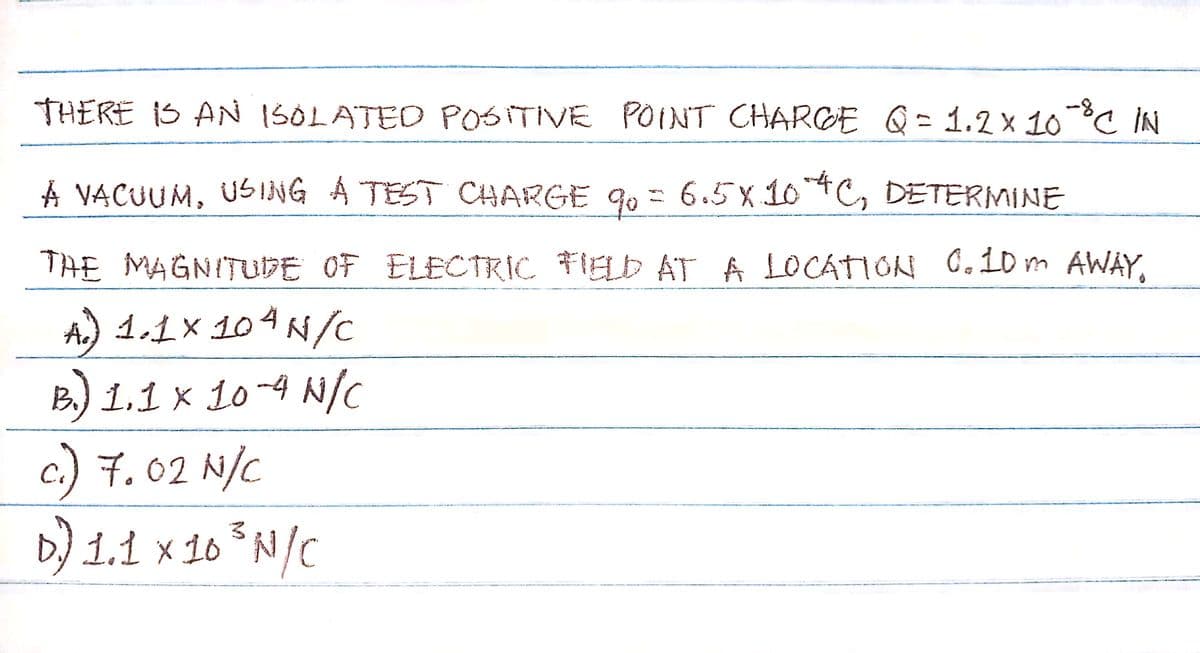 THERE IS AN ISOLATED POSITIVE POINT CHARGE Q = 1.2 x 10⁻⁸C IN
A VACUUM, USING A TEST CHARGE q₀ = 6.5 X 10⁻⁴C, DETERMINE
THE MAGNITUDE OF ELECTRIC FIELD AT A LOCATION 0.10 m AWAY.
A.) 1.1 x 10⁴ N/C
B.) 1.1 x 10⁻⁴ N/C
C.) 7.02 N/C
D.) 1.1 x 10³ N/C